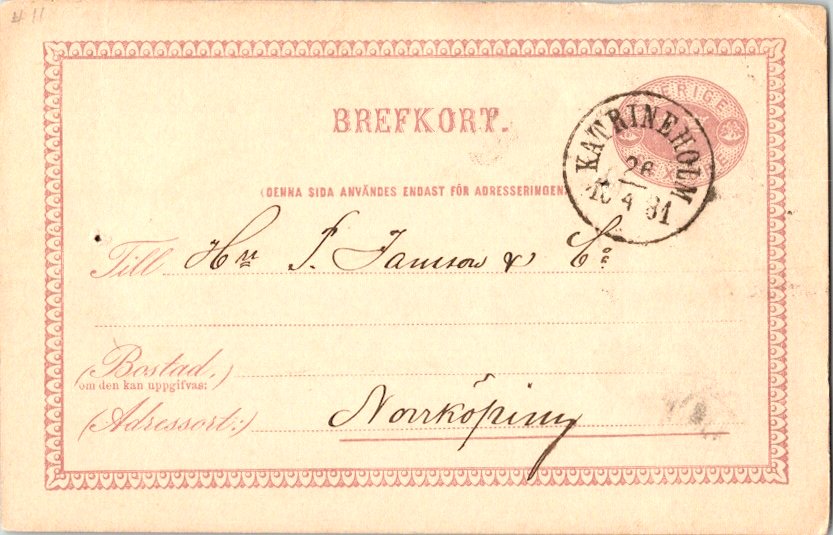 # 11
BREFKORT.
SVERIGE
KATRINEHOLM
26
4 81
(DENNA SIDA ANVÄNDES ENDAST FÖR ADRESSERINGEN
Till Hrr P. Janson & Co
(Bostad,)
om den kan uppgifvas:
(Adressort:) Norrköping